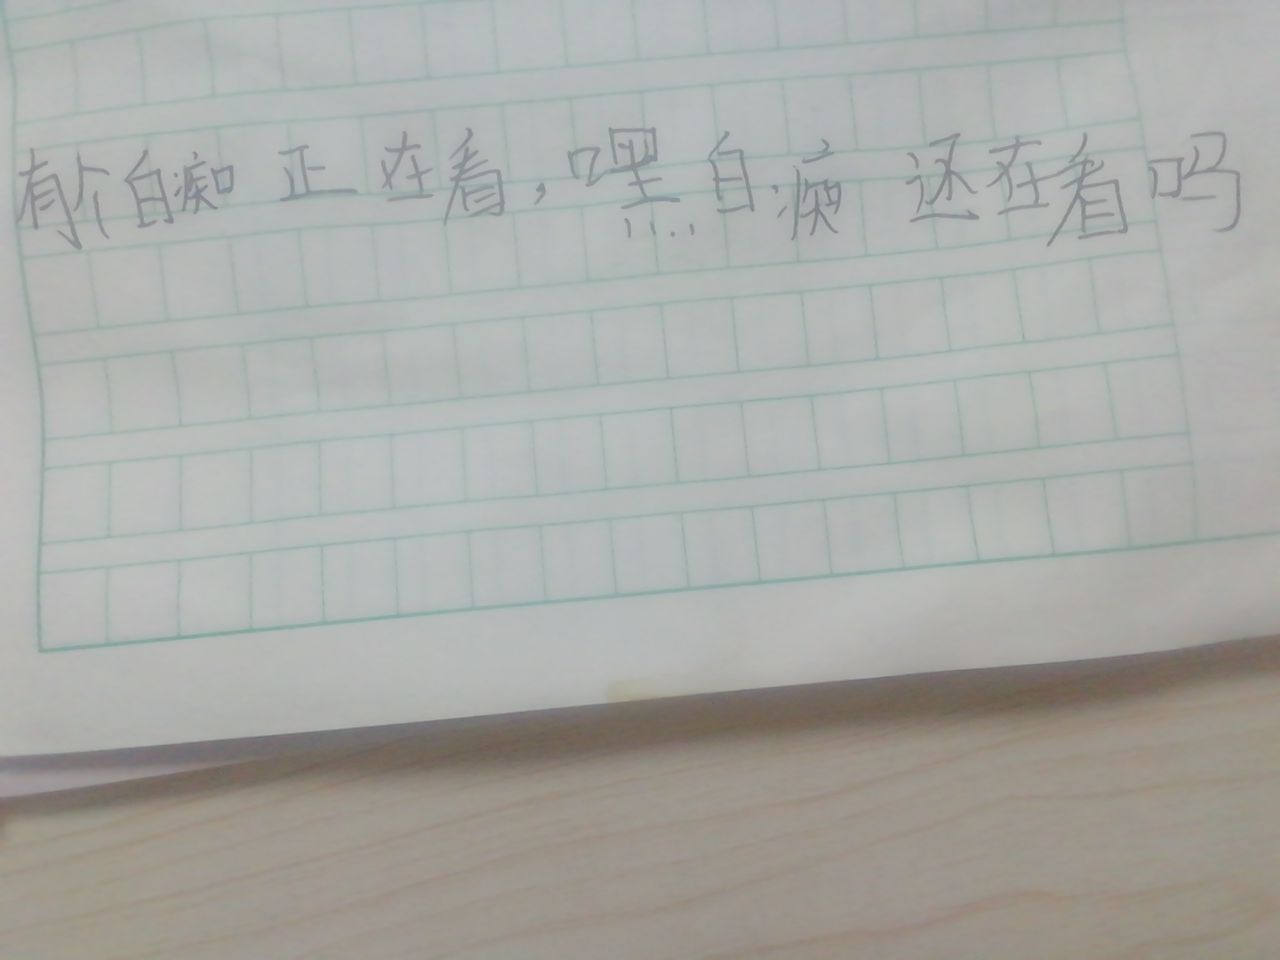 有个白痴正在看，嘿白痴还在看吗